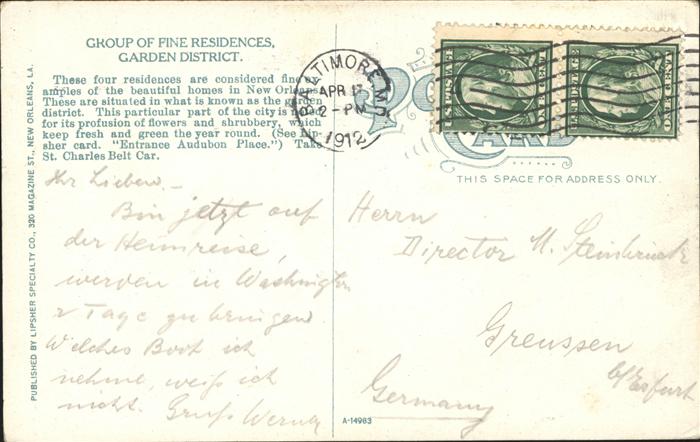 GROUP OF FINE RESIDENCES,
GARDEN DISTRICT.
These four residences are considered fine ex-
amples of the beautiful homes in New Orleans.
These are situated in what is known as the garden
district. This particular part of the city is noted
for its profusion of flowers and shrubbery, which
keep fresh and green the year round. (See Lip-
sher card. "Entrance Audubon Place.") Take
St. Charles Belt Car.
PUBLISHED BY LIPSHER SPECIALTY CO., 320 MAGAZINE ST., NEW ORLEANS, LA.
Ihr Lieben.-
Bin jetzt auf
der Heimreise,
werden in Washington
2 Tage zubringen.
Welches Boot ich
nehme, weiß ich
nicht. Gruß Werner
BALTIMORE, MD.
APR 17
2-PM
1912
U.S. POSTAGE
THIS SPACE FOR ADDRESS ONLY.
Herrn
Director Steinbrück
Greussen
b/Erfurt
Germany
A-14983